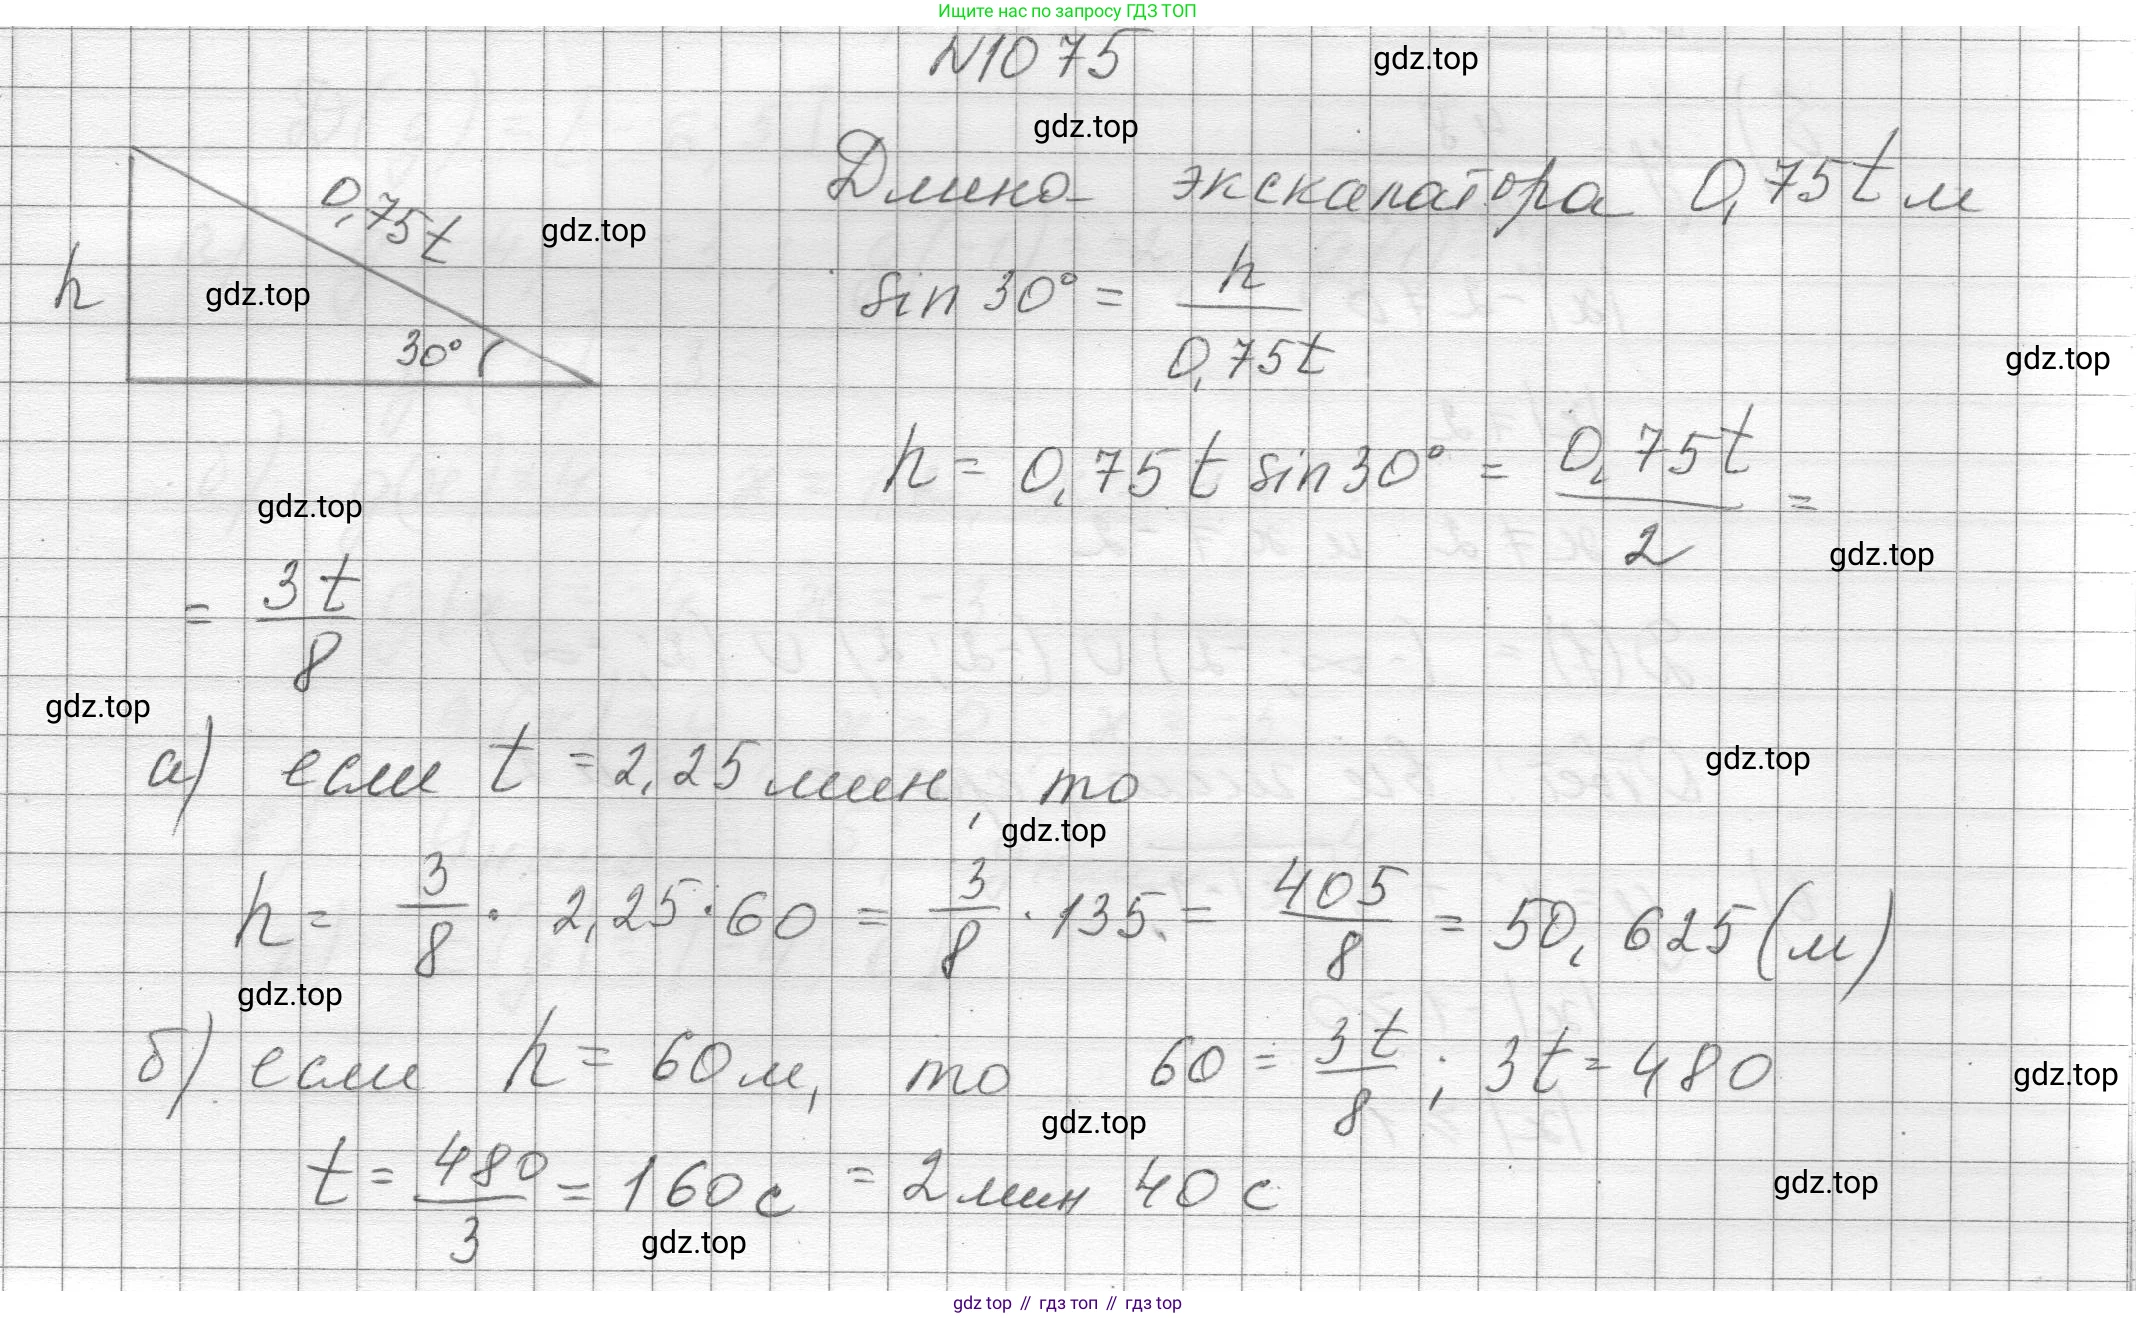 Ищите нас по запросу ГДЗ ТОП
N1075
gdz.top
gdz.top
Длина эскалатора 0,75t м
0,75t
gdz.top
h
gdz.top
30°
sin 30° = h / 0,75t
gdz.top
h = 0,75t sin 30° = 0,75t / 2 =
gdz.top
gdz.top
= 3t / 8
gdz.top
а) если t = 2,25 мин, то
gdz.top
gdz.top
h = 3/8 · 2,25 · 60 = 3/8 · 135 = 405/8 = 50,625 (м)
gdz.top
б) если h = 60 м, то 60 = 3t/8 ; 3t = 480
gdz.top
gdz.top
t = 480/3 = 160 с = 2 мин 40 с
gdz.top
gdz.top
gdz top // гдз топ // гдз top